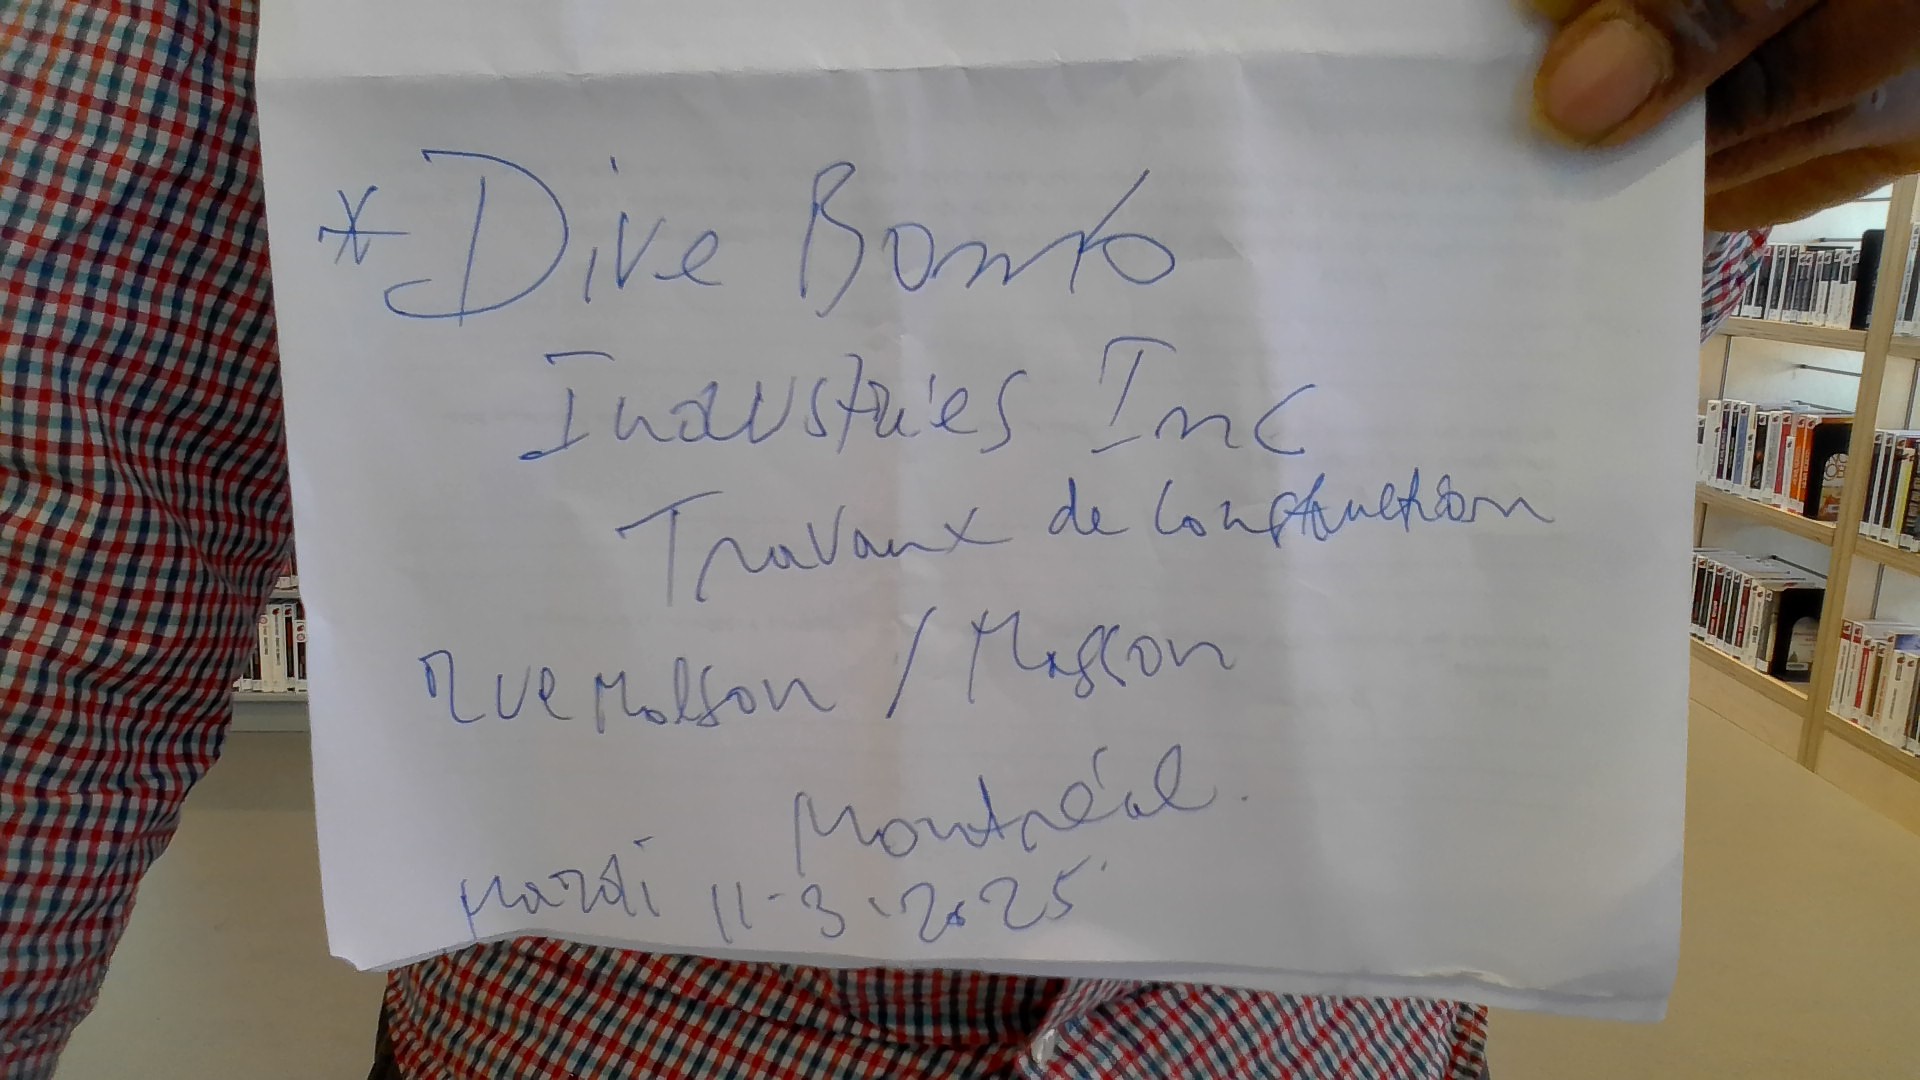 * Dive Bomb
Industries Inc
Travaux de Construction
rue Molson / Masson
Montréal.
Mardi 11-3-2025